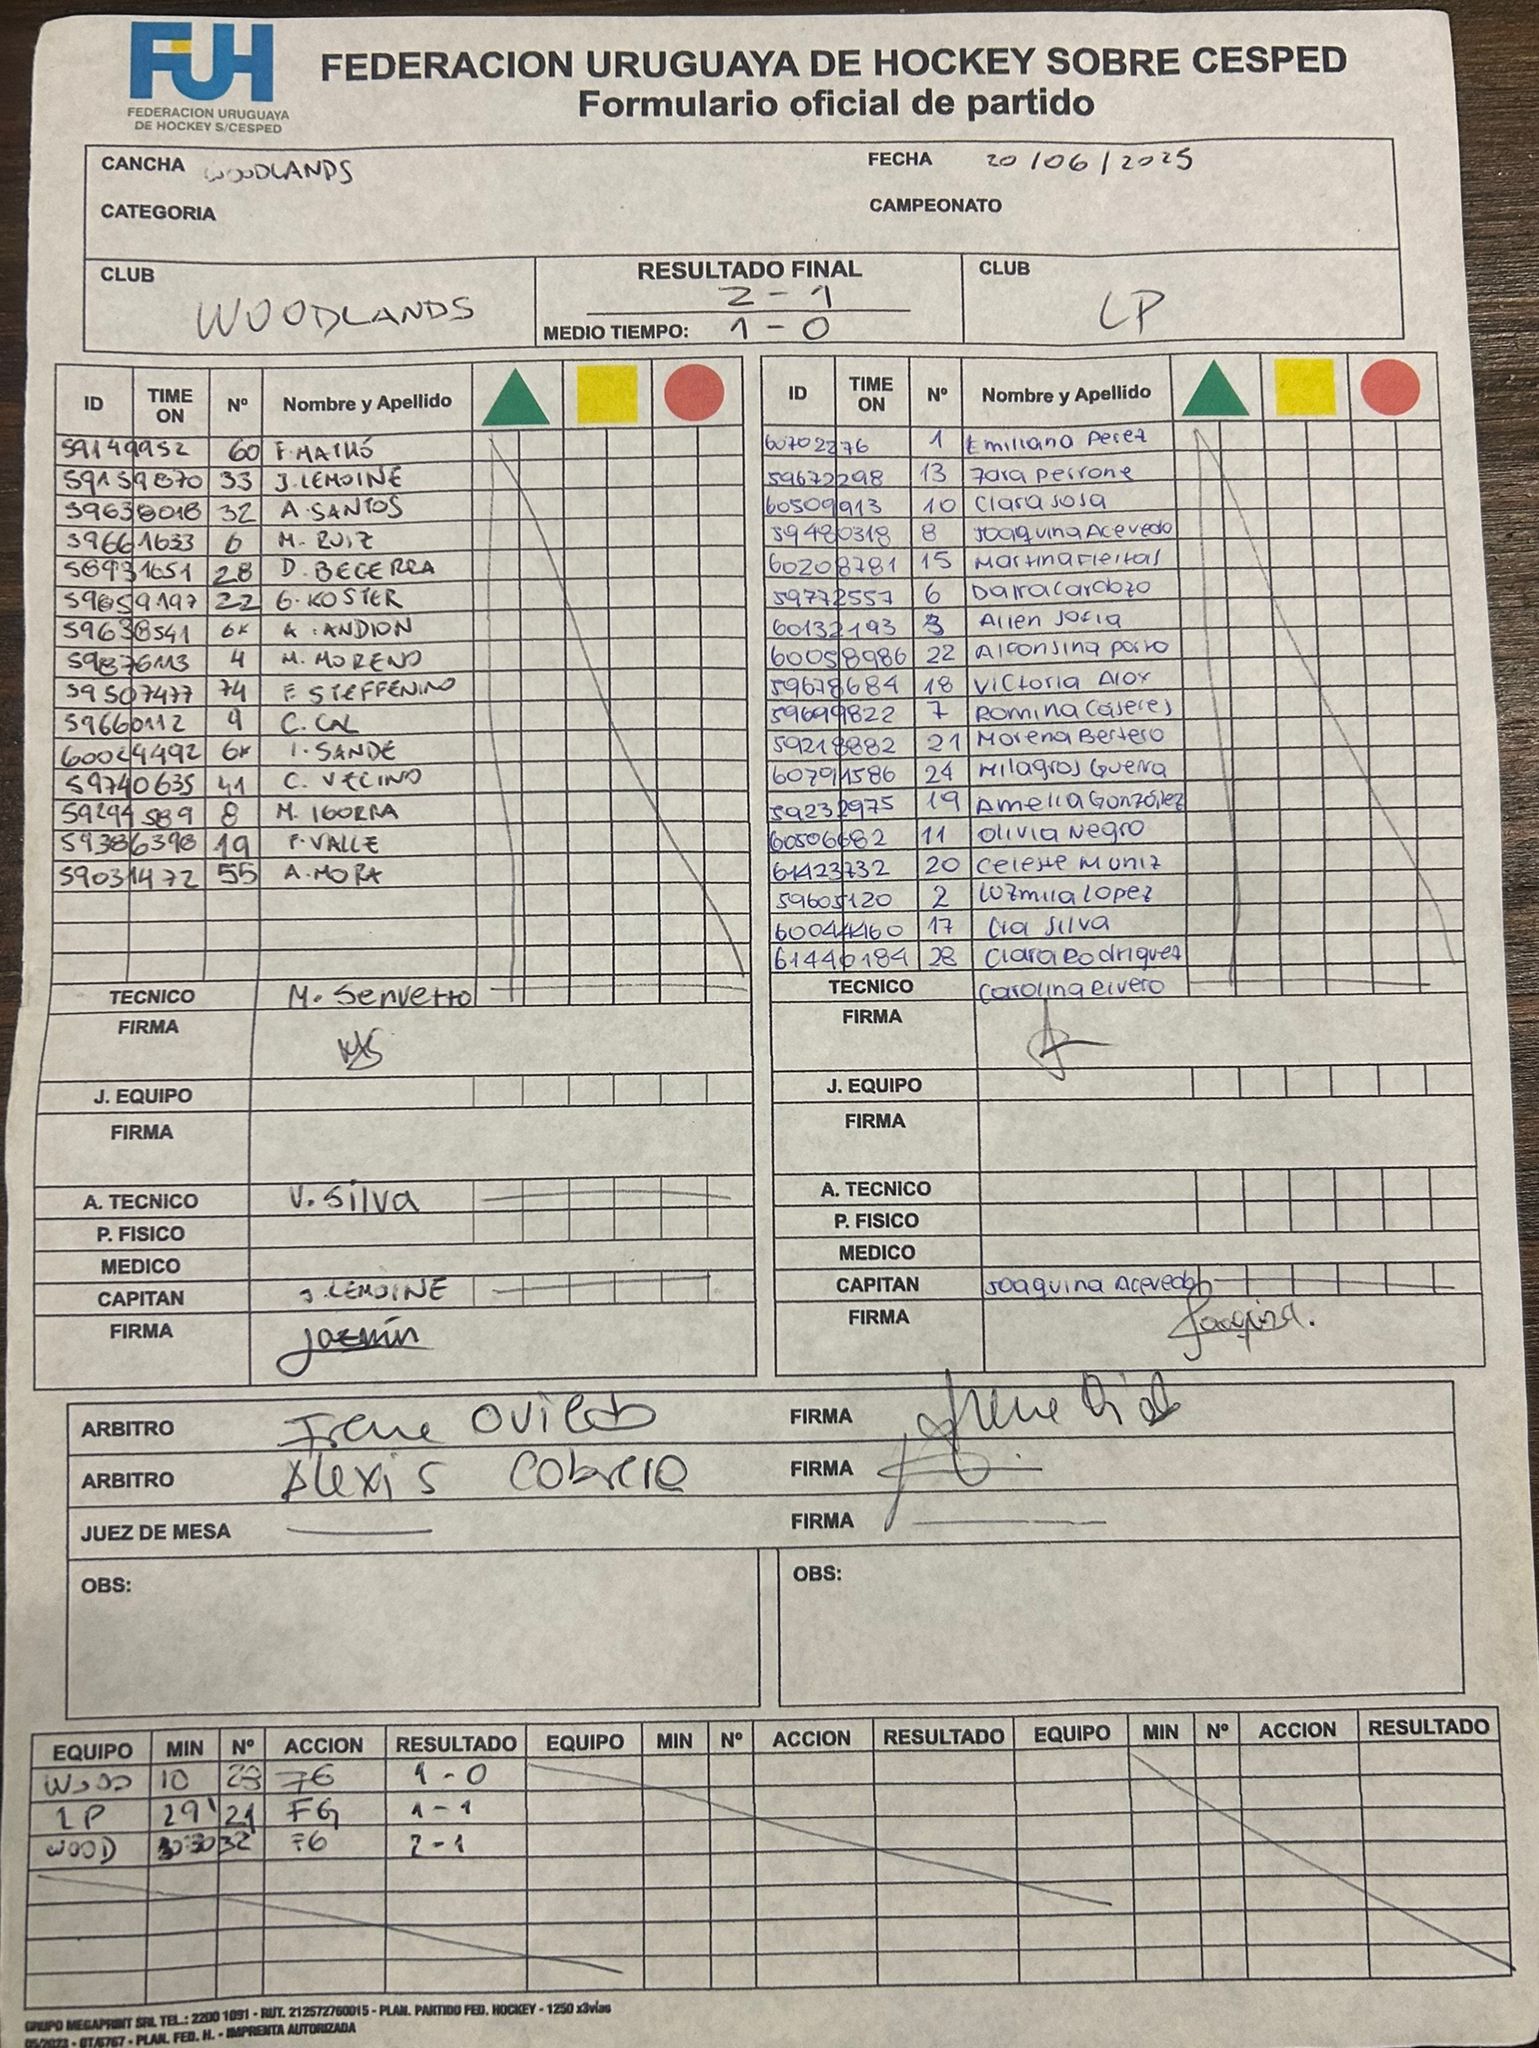 FUH
FEDERACION URUGUAYA
DE HOCKEY S/CESPED
FEDERACION URUGUAYA DE HOCKEY SOBRE CESPED
Formulario oficial de partido
CANCHA WOODLANDS FECHA 20/06/2025
CATEGORIA CAMPEONATO
CLUB RESULTADO FINAL CLUB
WOODLANDS 2-1 LP
MEDIO TIEMPO: 1-0
ID TIME ON Nº Nombre y Apellido ID TIME ON Nº Nombre y Apellido
59149952 60 F. MATHÓ 60702276 1 Emiliana Perez
59159870 33 J. LEMOINE 59672298 13 Jara Perrone
59638018 32 A. SANTOS 60509913 10 Clara Sosa
59661633 6 M. RUIZ 59480318 8 Joaquina Acevedo
58931651 28 D. BECERRA 60208781 15 Martina Freitas
59859197 22 G. KOSTER 59772557 6 Daira Cardozo
59638541 6* A. ANDION 60132193 3 Ailen Sofia
59876113 4 M. MORENO 60058986 22 Alfonsina Porro
59507477 74 F. STEFFENINO 59678684 18 Victoria Alox
59660112 9 C. CAL 59699822 7 Romina Caseres
60024492 6* I. SANDE 59218882 21 Morena Bertero
59740635 41 C. VECINO 60791586 24 Milagros Guerra
59294589 8 M. IGORRA 59232975 19 Amelia González
59386398 19 F. VALLE 60506682 11 Olivia Negro
59031472 55 A. MORA 61423732 20 Celeste Muniz
59605120 2 Luzmila Lopez
60044460 17 Lia Silva
61440184 28 Clara Rodriguez
TECNICO M. Servetto TECNICO Carolina Rivero
FIRMA MS FIRMA
J. EQUIPO J. EQUIPO
FIRMA FIRMA
A. TECNICO V. Silva A. TECNICO
P. FISICO P. FISICO
MEDICO MEDICO
CAPITAN J. LEMOINE CAPITAN Joaquina Acevedo
FIRMA Jazmín FIRMA Joaquina.
ARBITRO Irene Oviedo FIRMA Irene
ARBITRO Alexis Cabrera FIRMA
JUEZ DE MESA FIRMA
OBS: OBS:
EQUIPO MIN Nº ACCION RESULTADO EQUIPO MIN Nº ACCION RESULTADO EQUIPO MIN Nº ACCION RESULTADO
WOOD 10 28 FG 1-0
LP 29' 21 FG 1-1
WOOD 30:30 32 FG 2-1
GRUPO MEGAPRINT SRL TEL.: 2200 1091 - RUT. 212572760015 - PLAN. PARTIDO FED. HOCKEY - 1250 x3vías
05/2023 - OT/6767 - PLAN. FED. H. - IMPRENTA AUTORIZADA